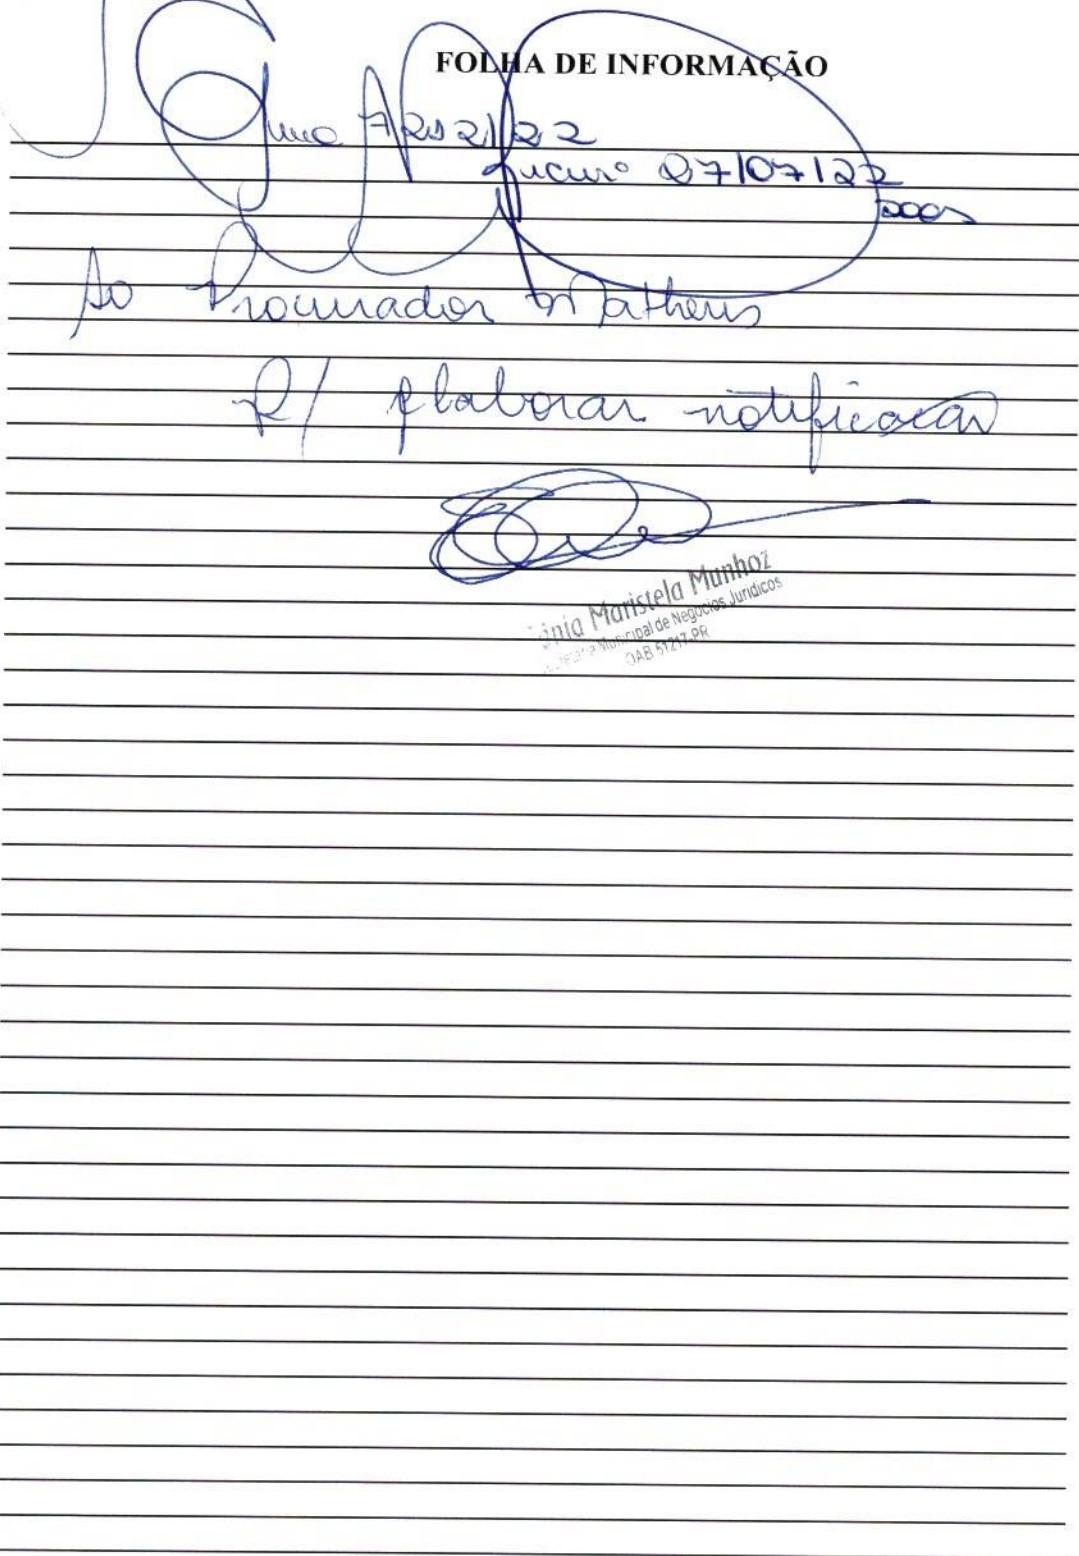 FOLHA DE INFORMAÇÃO
27/07/22
Ao Procurador Matheus
P/ elaborar notificação
Maristela Munhoz
Municipal de Negócios Jurídicos
OAB 51217-PR